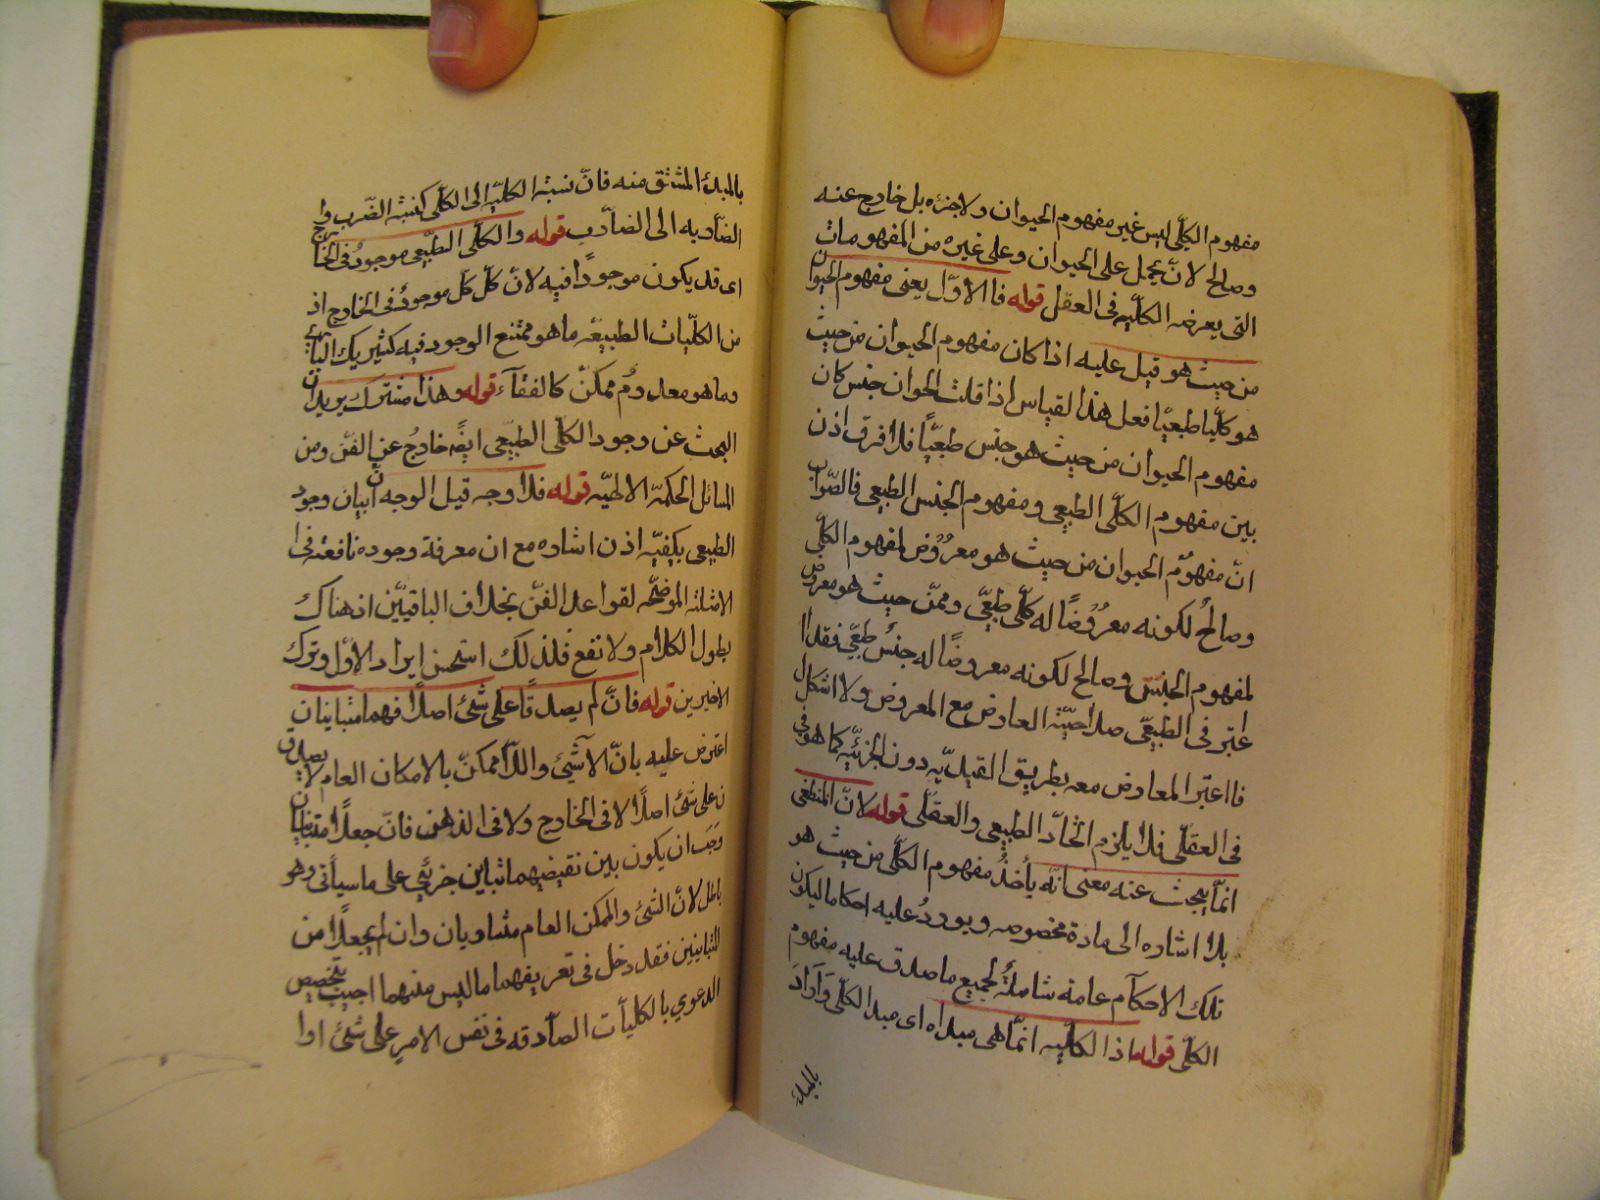 مفهوم الكلّى ليس غير مفهوم الحيوان ولاجزءه بل خارج عنه
وصالح لانّ يحمل على الحيوان وعلى غيره من المفهومات
التى يعرضه الكلّيه فى العقل قوله فاالاوّل يعنى مفهوم الحيوان
من حيث هو قيل عليه اذا كان مفهوم الحيوان من حيث
هو كلّيا طبعيّا فعل هذا القياس اذا قلت الحوان جنس كان
مفهوم الحيوان من حيث هو جنس طبعيّاً فلا فرق اذن
بين مفهوم الكلّى الطبعى ومفهوم الجنس الطبعى فالصّواب
انّ مفهوم الحيوان من حيث هو معروض لمفهوم الكلّى
وصالح لكونه معروضًا له كلّى طبعّى ومن حيث هو معروض
لمفهوم الجنس وصالح لكونه معروضًا له جنسٌ طبعّى فقد
اعتبر فى الطبعّى صلاحيّة العارض مع المعروض ولا اشكال
فااعتبر المعارض معه بطريق القيديّه دون الجزئيّه كما هو فى
فى العقلّى فلا يلزم اتّحاد الطبيعى والعقلّى قوله لانّ المنطقى
انمّا يبحث عنه معنى انّه يأخذُ مفهوم الكلّى من حيث هو
بلا اشاره الى مادة مخصوصه ويوردُ عليه احكاما ليكون
تلك الاحكام عامة شاملةٌ لجميع ما صدق عليه مفهوم
الكلّى قوله اذا الكلّيه انمّا هى مبداه اى مبدا الكلّى وَاَرَادَ
بالمبدء
بالمبدء المشتق منه فانّ نسبة الكليّه الى الكلّى كنسبة الضّرب و
الضّاربه الى الضّارب قوله والكلّى الطبّيعى موجودٌ فى الخارج
اى قد يكون موجوداً فيه لانّ كلّ كل موجودٌ فى الخارج اذ
من الكلّيات الطبيعّه ما هو ممتنع الوجود فيه كشريك البارى
وما هو معدومُ ممكنّ كالعنقآء قوله وهذا مشترك يريد ان
البحث عن وجود الكلّى الطبّيعى ايضًا خارجُ عن الفنّ ومن
المسائل الحكمّة الالهيّه قوله فلا وجه قيل الوجه انّ بيان وجود
الطبيعى يكفيّه اذن اشاره مع ان معرفة وجوده نافعة فى
الامثلة الموضحّه لقواعد الفنّ بخلاف الباقييّن اذ هناك
يطول الكلام ولا نفع فلذلك استحسن ايراد الاوّل وترك
الاخيرين قوله فانّ لم يصدقا على شئ اصلاً فهما متباينان
اعترض عليه بانّ الاشئ واللّا ممكنّ بالامكان العام لا يصدقا
ن على شئ اصلاً لا فى الخارج ولا فى الذهن فانّ جعلا متباينان
وجَبَ ان يكون بين نقيضيهما تباين جزئىّ على ما سيأتى وهو
باطل لانّ الشئ والممكن العام متساويان وان لم يجعلا من
المتباينين فقد دخل فى تعريفهما ما ليس منهما اجيب بتخصيص
الدعوي بالكلّيات الصّادقه فى نفس الامر على شئ او